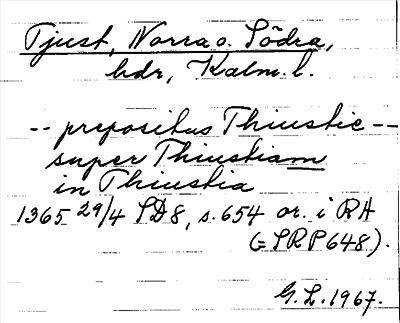 Tjust, Norra o. Södra,
hdr, Kalm. l.
-- prepositus Thiustie --
super Thiustiam
in Thiustia
1365 29/4 SD8, s. 654 or. i RA
(= SRP 648).
G. L. 1967.